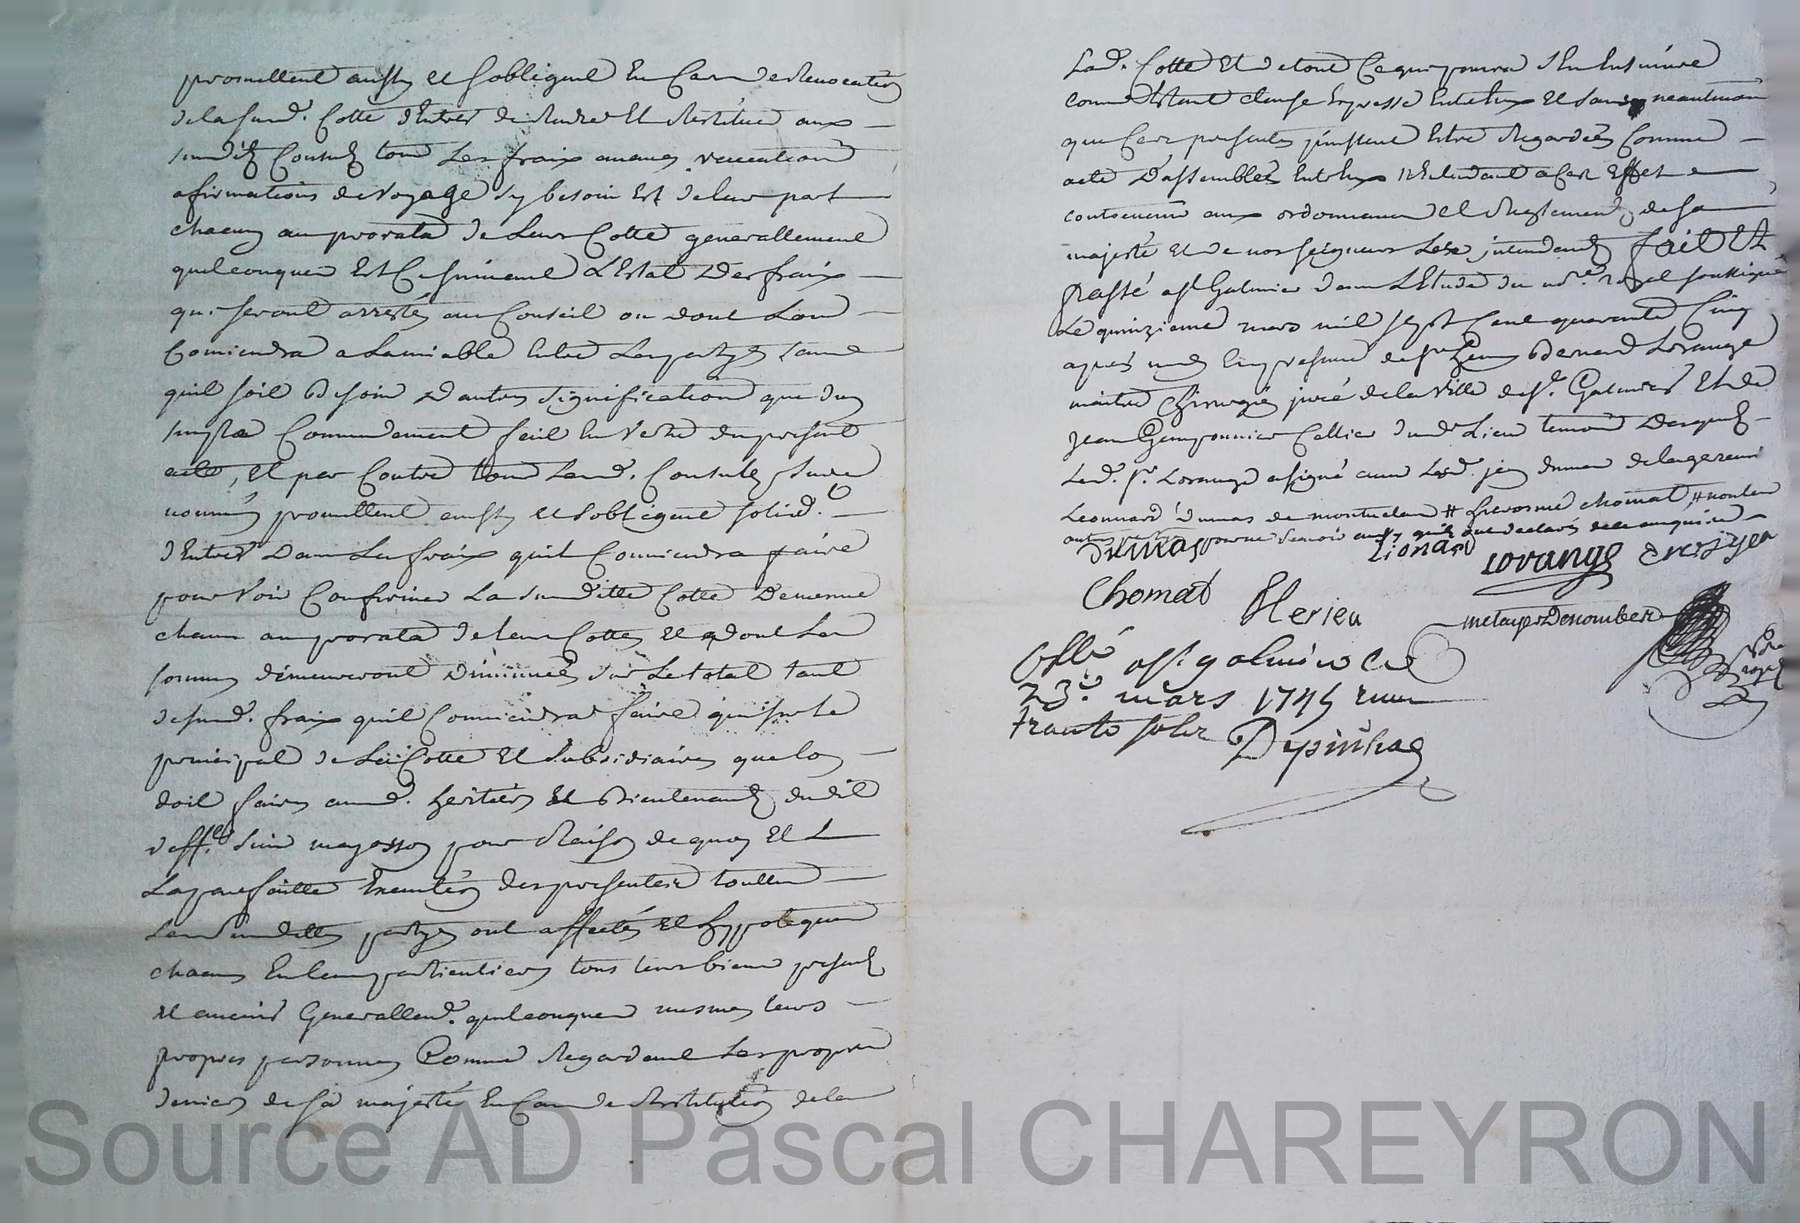 promettent aussy et sobligent en cas de Revocation
de la susd. Cotte dEntrer de Rendre Et Restituer aux
susdits Consuls tous Les fraix avances vaccations
afirmations de voyage sy besoin Est de leur part
chacun au prorata de Leurs Cotte generallement
quelconques Et Ce suivant LEstat Des fraix
qui seront arrestés au Conseil ou dont Lon
Conviendra a Lamiable Entre Les partyes sans
quil soit Besoin Dautres Signification que dun
simple Commandement fait En Vertu du present
acte, Et par Contre tous Lesd. Consuls sus
nommés promettent aussy et sobligent solid.t
dEntrer Dans Les fraix quil Conviendra faire
pour Voir Confirmer La susditte Cotte Demeure
chacun au prorata de leurs Cottes et dont Les
sommes demeureront Diminuées sur Le total tant
desusd. fraix quil Conviendra faire que sur Le
principal de La Cotte Et Subsidiaires que lon
doit faire ausd. heritiers Et Bientenants dudit
deff.t Sieur mayosson pour Raison de quoy Et L
La parfaitte Execution des presentes touttes
Les Susdittes partyes ont affectés Et hypotequés
chacuns En leurs particuliers tous leurs biens presents
et avenir Generallem.t quelconques mesmes leurs
propres personnes Comme Regardant Les propres
deniers de sa majesté En Cas de Restitution de la
Lad. Cotte Et de tout Ce qui pourra sEn Ensuivre
comme Estant clause Expresse Entre Eux Et sans neantmoins
que Ces presentes puissent Estre Regardées Comme
acte Dassemblées Entre Eux Netendant a Cet Effet
contrevenir aux ordonnances et Reglements de sa
majesté et de nosseigneurs Les intendants fait Et
Passé a St Galmier dans LEtude du no.re royal soussigné
Le quinzieme mars mil sept Cent quarante Cinq
apres midy En presence de sr Jean Bernard Lorange
maitre Chirurgien juré de la Ville de St. Galmier Et de
Jean Gemponnier Cellier dud. Lieu temoins Desquels
Led. sr. Lorange a signé avec Lesd. jean dumas de lageneui
Leonnard dumas de montuclard # hierosme chomat, # non les
autres pour ne scavoir ainsy quils ont declaré de ce enquis
dumas Lionard Lorange Verssyer
Chomat Herieu
metayer Denombert
No.re royal
Cllé a St. galmier Ce
23.e mars 1745 recu
trante sols Depinhac
Source AD Pascal CHAREYRON